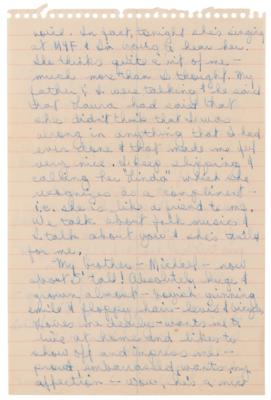 voice. In fact, tonight she's singing
at MYF & I'm going to hear her.
She thinks quite a bit of me -
much more than I thought. My
father & I were talking & he said
that Laura had said that
she didn't think that I was
wrong in anything that I had
ever done & that made me feel
very nice. I keep slipping &
calling her "Linda" which she
recognizes as a compliment -
i.e. she is like a friend to me.
We talk about folk music &
I talk about you & she's
for me.
My brother - Michael - now
about 5' tall! Absolutely huge &
grown almost - boyish winning
smile & floppy hair -
loves me dearly - wants me to
live at home and likes to
show off and impress me -
proud, embarrassed, wants my
affection - Wow, he's a